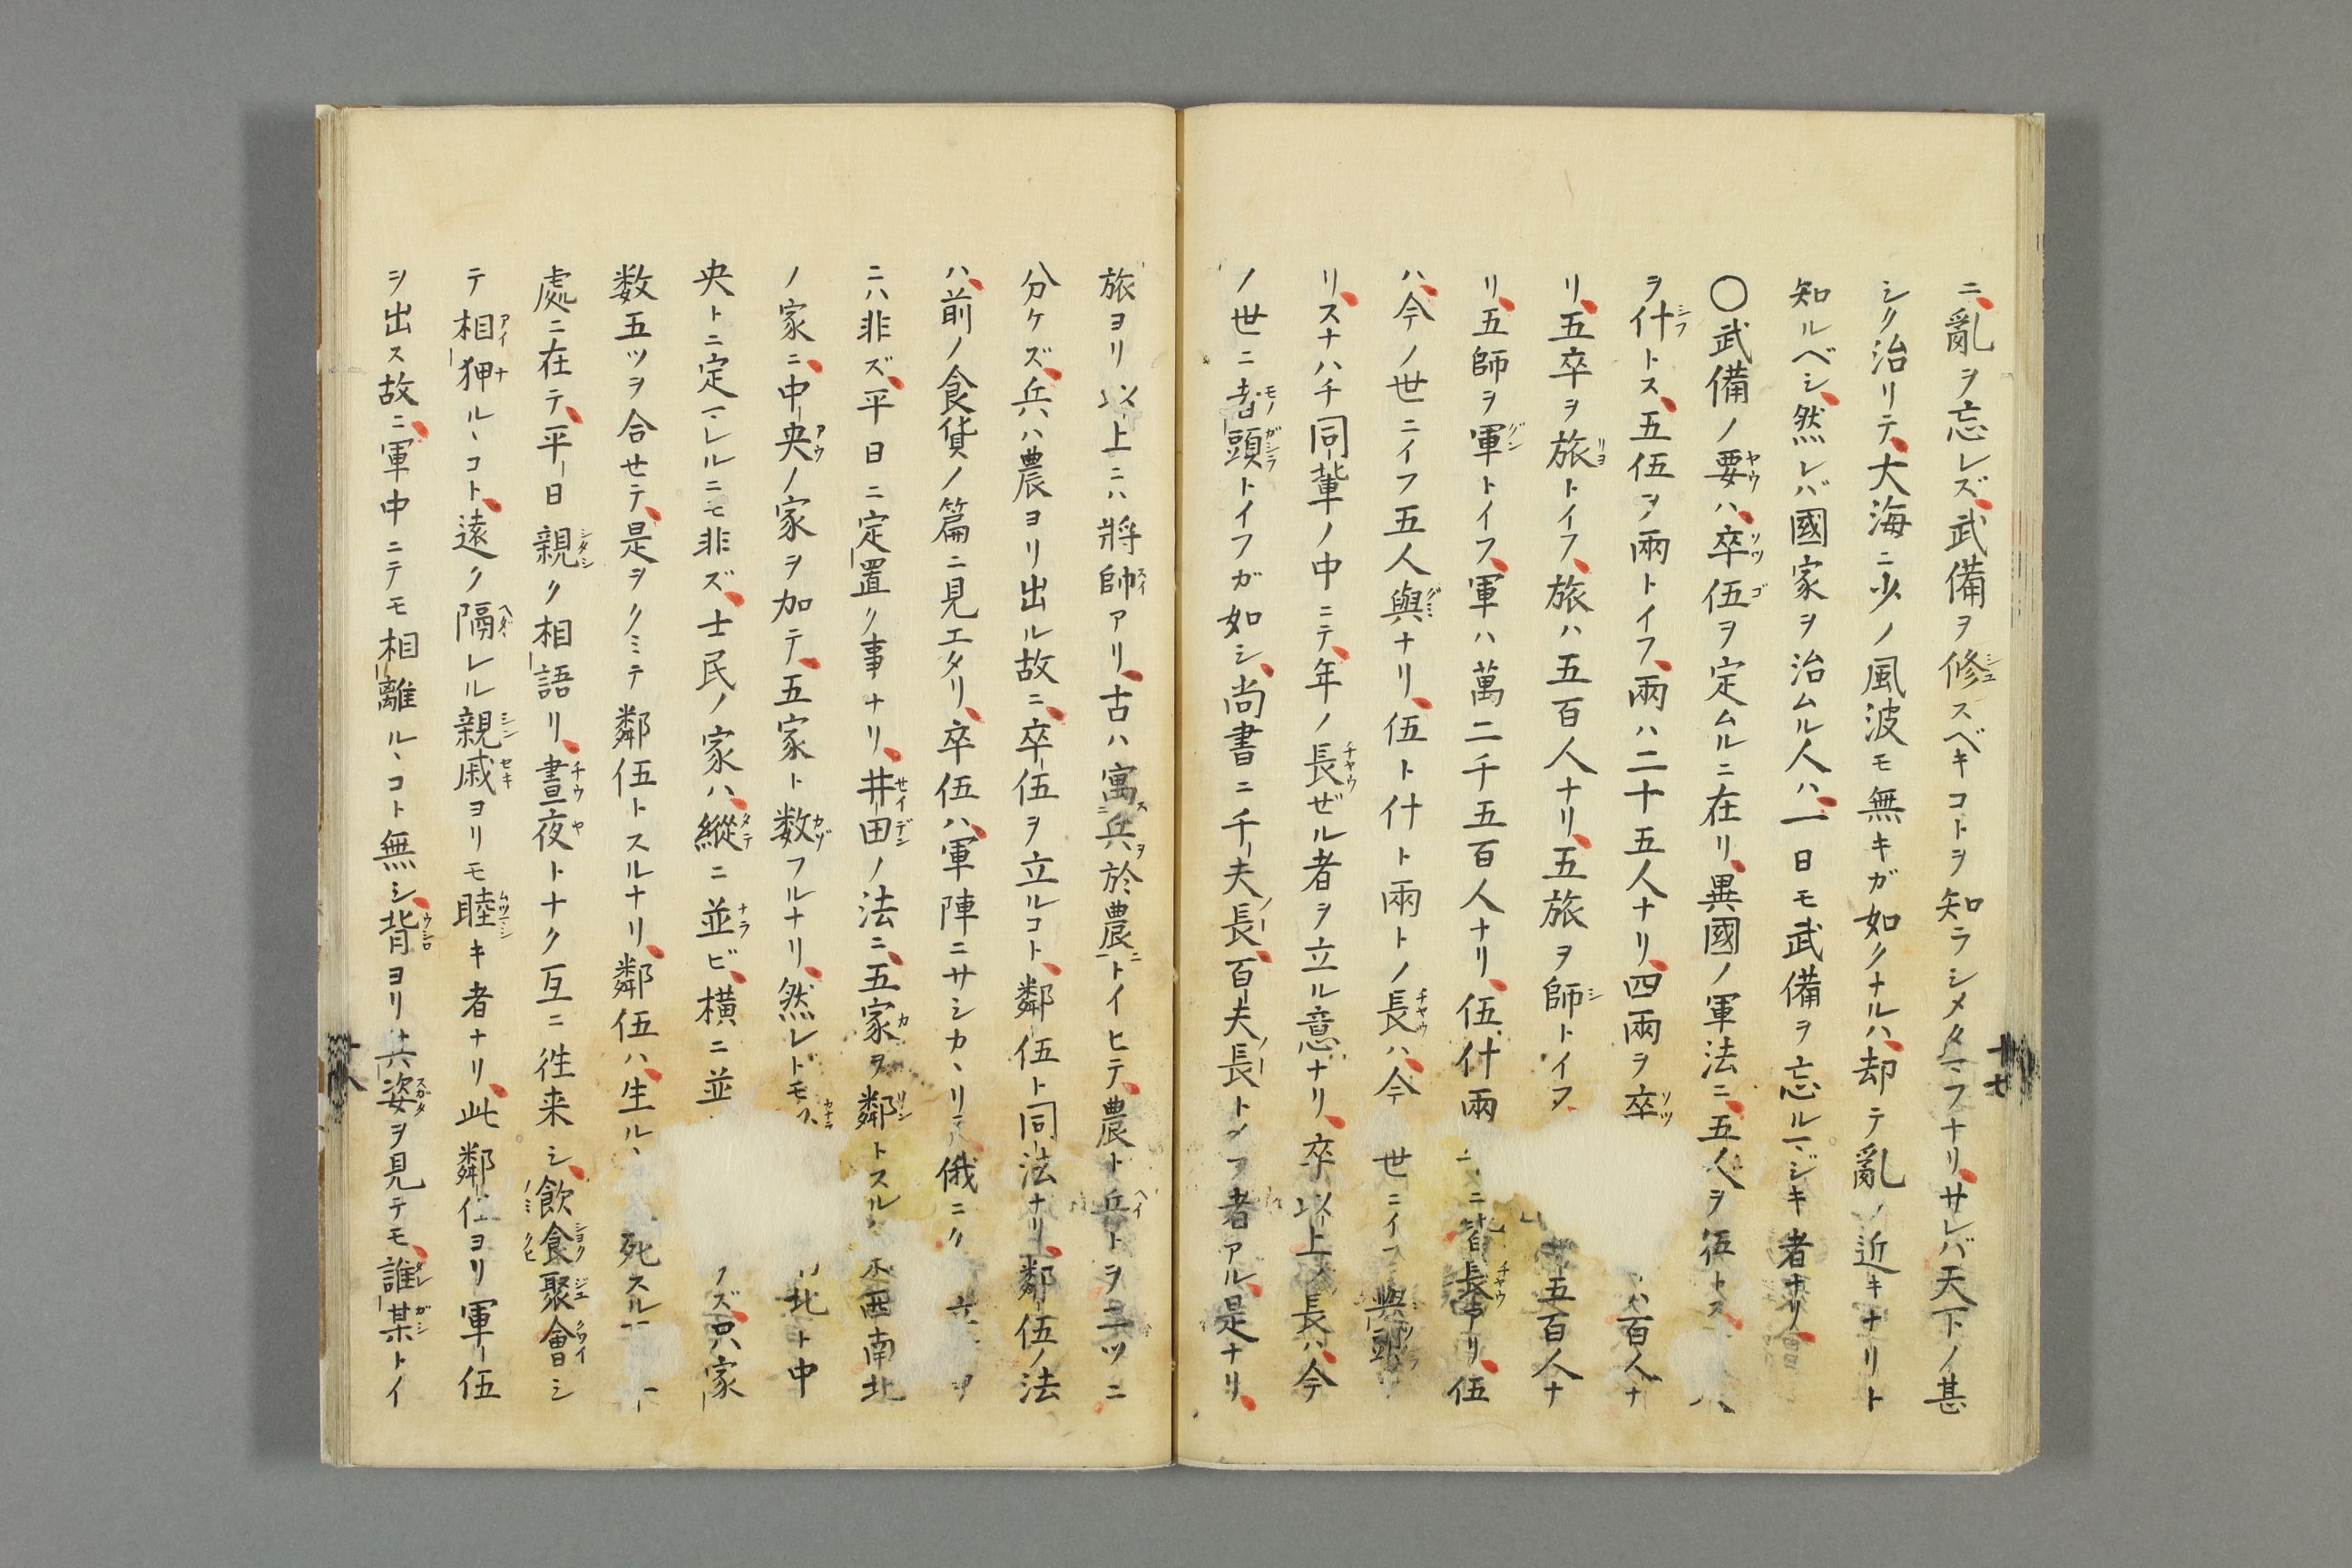 ニ亂ヲ忘レズ、武備ヲ修スベキコトヲ知ラシメタマフナリ、サレバ天下ノ甚
シク治リテ、大海ニ少ノ風波モ無キガ如クナルハ、却テ亂ノ近キナリト
知ルベシ、然レバ國家ヲ治ムル人ハ、一日モ武備ヲ忘ルマジキ者ナリ、
〇武備ノ要ハ、卒伍ヲ定ムルニ在リ、異國ノ軍法ニ、五人ヲ伍トス、
ヲ什トス、五伍ヲ兩トイフ、兩ハ二十五人ナリ、四兩ヲ卒 ハ百人ナ
リ、五卒ヲ旅トイフ、旅ハ五百人ナリ、五旅ヲ師トイフ、 五百人ナ
リ、五師ヲ軍トイフ、軍ハ萬二千五百人ナリ、伍什兩 ニ皆長アリ、伍
ハ、今ノ世ニイフ五人與ナリ、伍ト什ト兩トノ長ハ、今 世ニイフ與頭
リ、スナハチ同輩ノ中ニテ、年ノ長ゼル者ヲ立ル意ナリ、卒以上ノ長ハ、今
ノ世ニ者頭トイフガ如シ、尚書ニ千夫長、百夫長トイフ者アル、是ナリ、
旅ヨリ以上ニハ將帥アリ、古ハ寓兵於農トイヒテ、農ト兵トヲ二ツニ
分ケズ、兵ハ農ヨリ出ル故ニ、卒伍ヲ立ルコト、鄰伍ト同法ナリ、鄰伍ノ法
ハ、前ノ食貨ノ篇ニ見エタリ、卒伍ハ、軍陣ニサシカヽリテ、俄ニ 立 ヲ
ニハ非ズ、平日ニ定置ク事ナリ、井田ノ法ニ、五家ヲ鄰トスル 西南北
ノ家ニ、中央ノ家ヲ加テ、五家ト数フルナリ、然レドモ 北ト中
央トニ定マレルニモ非ズ、士民ノ家ハ、縱ニ並ビ、横ニ並 ズ只家
数五ツヲ合セテ、是ヲクミテ鄰伍トスルナリ、鄰伍ハ、生ルヽ 死スル
處ニ在テ、平日親ク相語リ、晝夜トナク互ニ徃来シ、飲食聚會シ
テ相狎ルヽコト、遠ク隔レル親戚ヨリモ睦キ者ナリ、此鄰伍ヨリ軍伍
ヲ出ス故ニ、軍中ニテモ相離ルヽコト無シ、背ヨリ其姿ヲ見テモ、誰某トイ